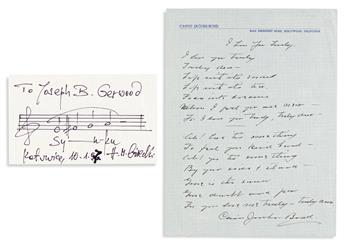 To Joseph B. Gerwood
Sy — n — ku
Katowice 10.1. H. M. Górecki
CARRIE JACOBS-BOND
HOLLYWOOD, CALIFORNIA
I Love You Truly
I love you truly
Truly dear —
Life with its sorrow
Life with its tear
Fades into dreams
When I feel you are near —
For I love you truly, Truly dear —
Ah! Love tis something
To feel your kind hand —
Ah! yes tis something
By your side to stand —
Gone is the sorrow
Gone doubt and fear
For you love me truly — Truly dear
Carrie Jacobs-Bond